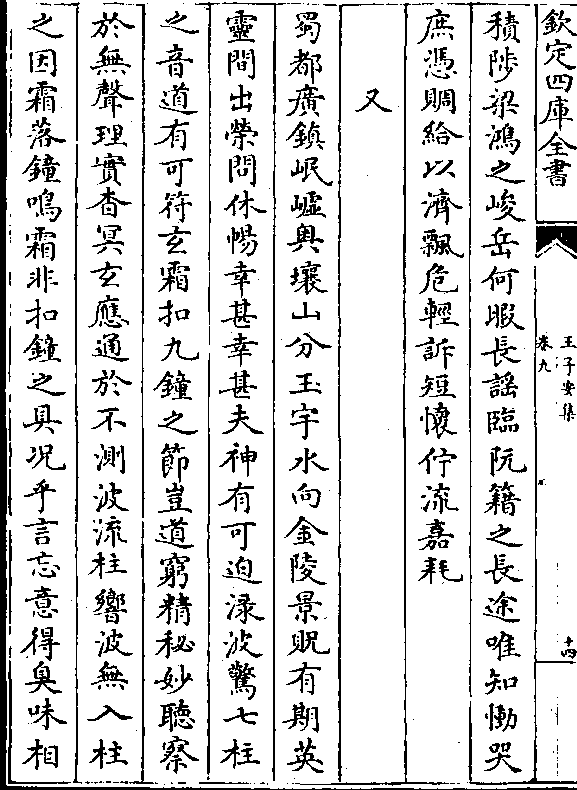 欽定四庫全書
王子安集
卷九
十四
積陟梁鴻之峻岳何暇長謡臨阮籍之長途唯知慟哭
庶憑賙給以濟飄危輕訴短懷佇流嘉耗
又
蜀都廣鎮岷嶇輿壤山分玉宇水向金陵景貺有期英
靈間出榮問休暢幸甚幸甚夫神有可迫渌波驚七柱
之音道有可符玄霜扣九鐘之節豈道窮精秘妙聽察
於無聲理實杳冥玄應通於不測波流柱響波無入柱
之因霜落鐘鳴霜非扣鐘之具况乎言忘意得臭味相